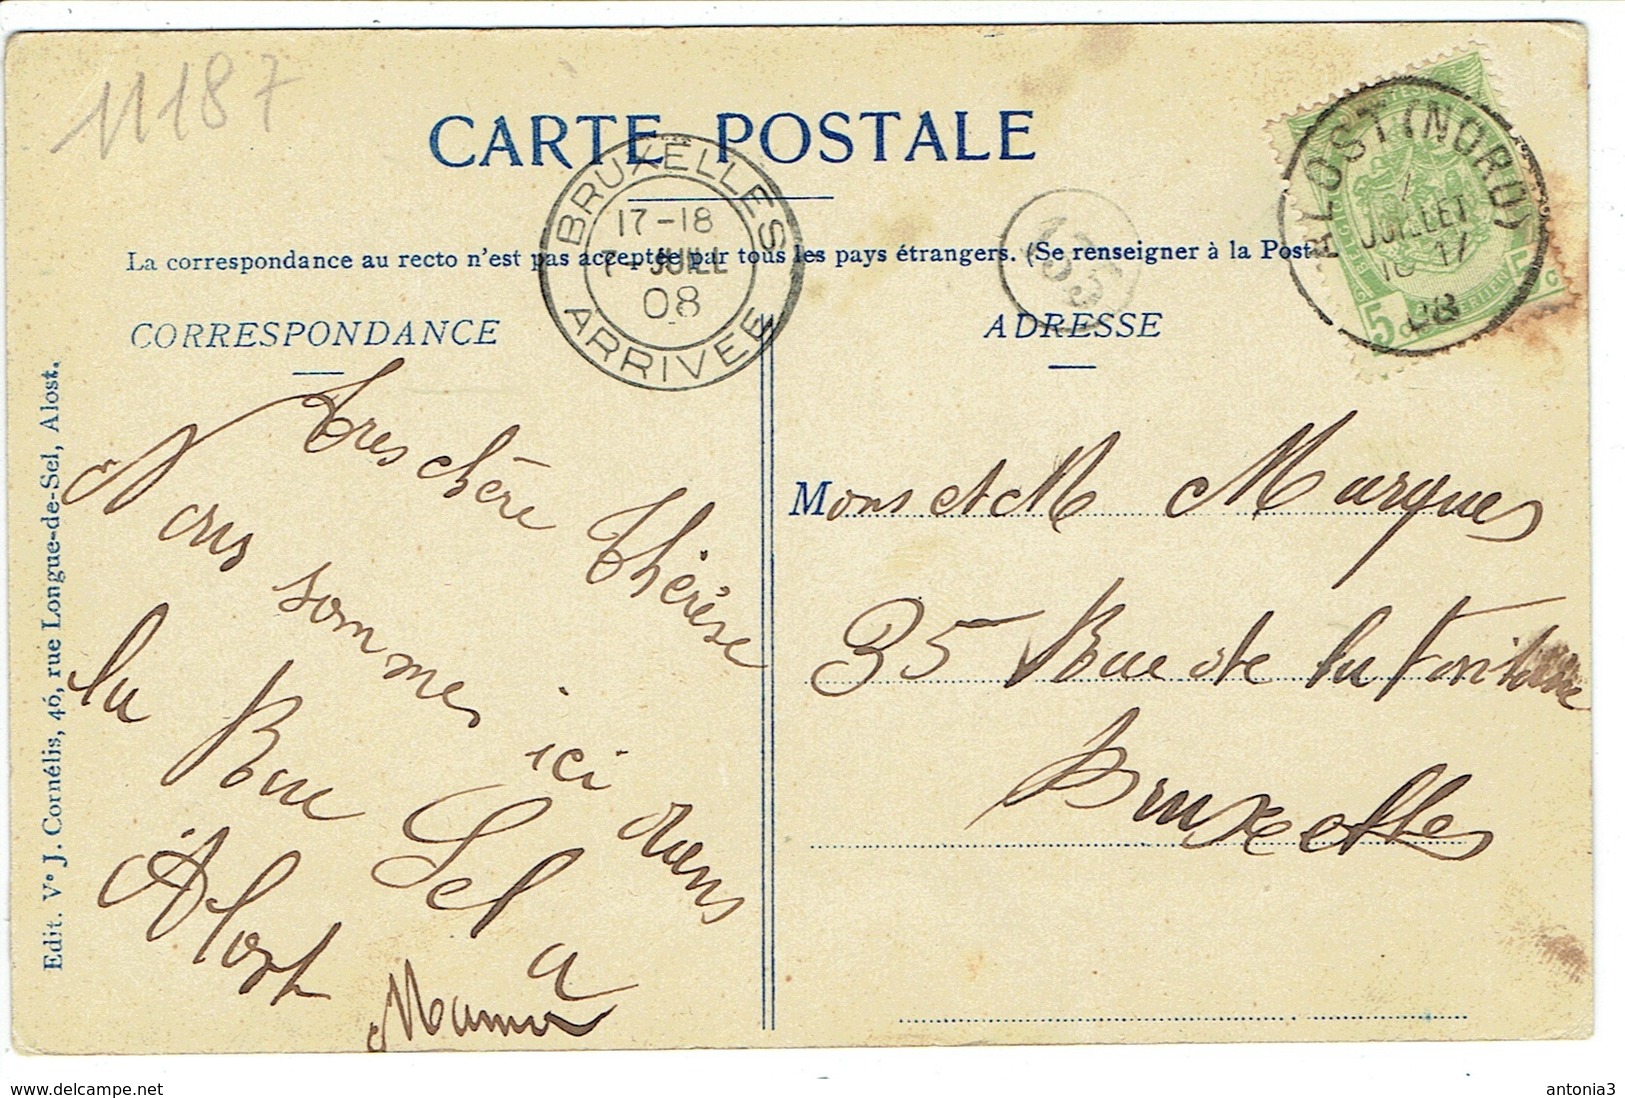 11187
CARTE POSTALE
BRUXELLES
17-18
7 - JUILL
08
ARRIVEE
155
ALOST (NORD)
JUILLET
08
5 c
La correspondance au recto n'est pas acceptée par tous les pays étrangers. (Se renseigner à la Post
CORRESPONDANCE
Edit. Ve J. Cornélis, 46, rue Longue-de-Sel, Alost.
tres chère Thérèse
Nous sommes ici dans
la Rue Sel a
Alost
Maman
ADRESSE
Mons et M Marques
35 Rue de la
Bruxelles
delcampe.net
antonia3